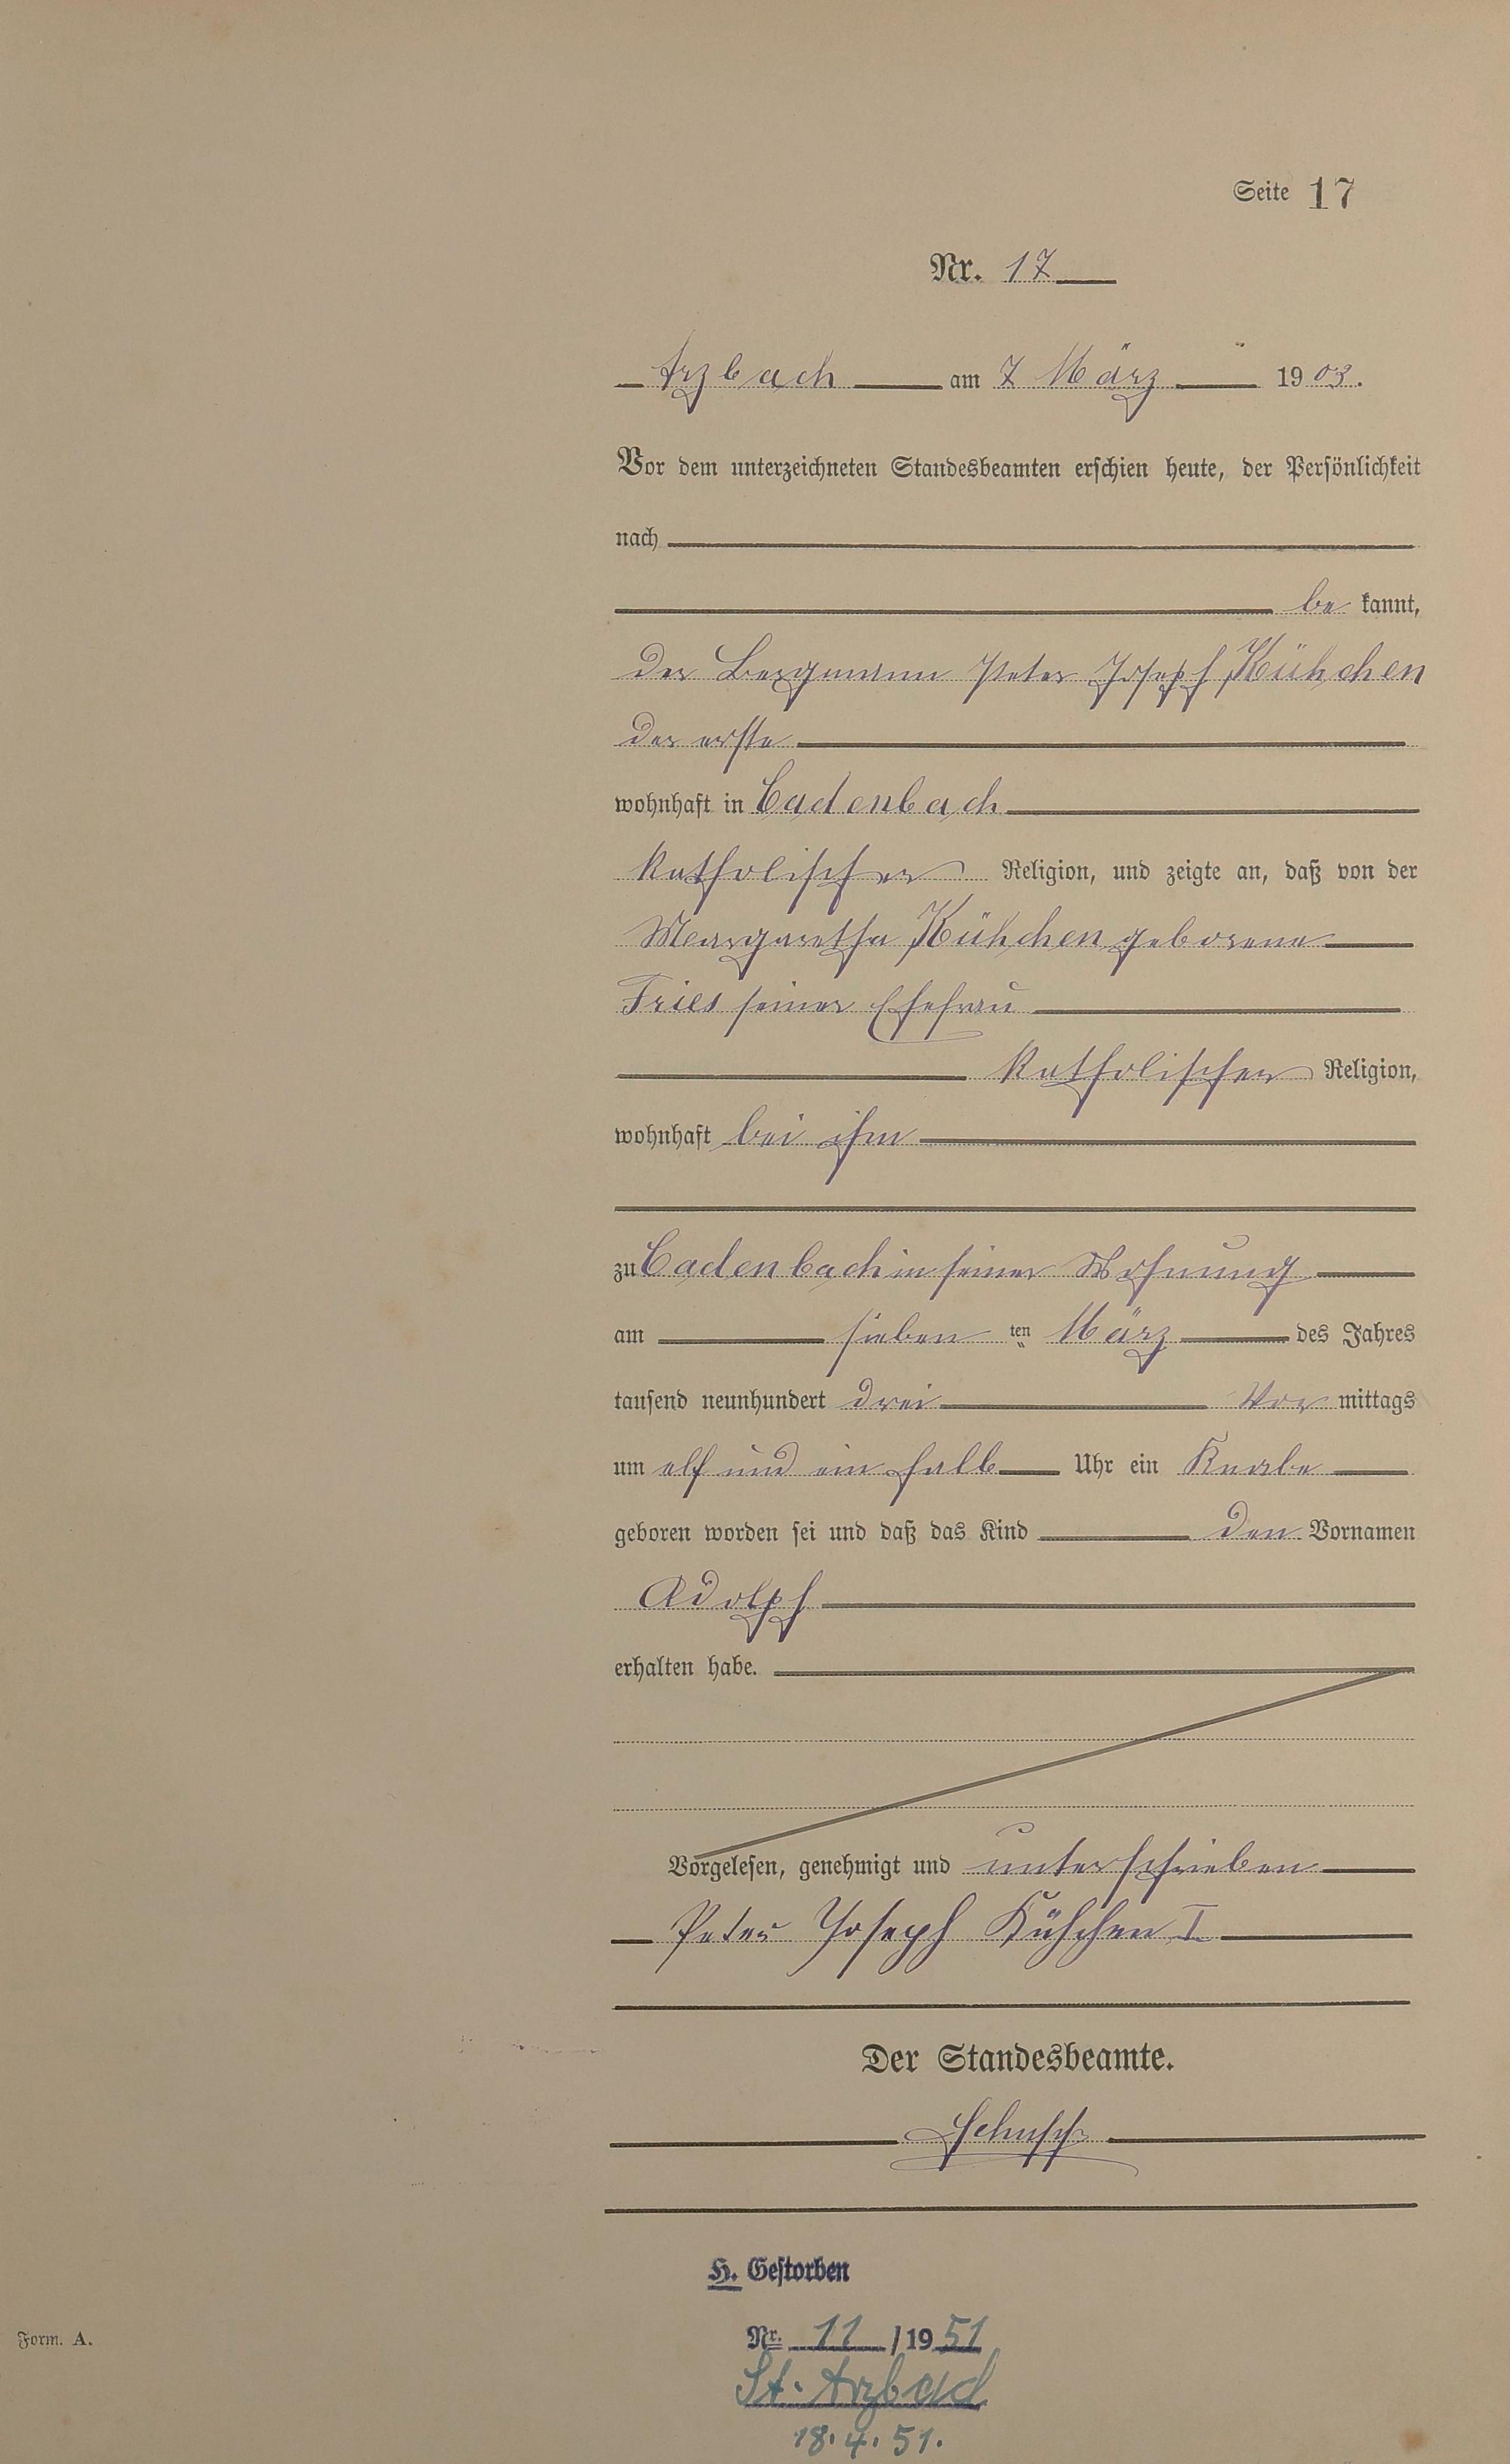 Seite 17
Nr. 17
Arzbach am 7 März 1903.
Vor dem unterzeichneten Standesbeamten erschien heute, der Persönlichkeit
nach
be kannt,
der Bergmann Peter Joseph Kühchen
der erste
wohnhaft in Cadenbach
katholischer Religion, und zeigte an, daß von der
Margaretha Kühchen geborene
Fries seiner Ehefrau
katholischer Religion,
wohnhaft bei ihm
zu Cadenbach in seiner Wohnung
am sieben ten März des Jahres
tausend neunhundert drei Vor mittags
um elf und ein halb Uhr ein Knabe
geboren worden sei und daß das Kind den Vornamen
Adolph
erhalten habe.
Vorgelesen, genehmigt und unterschrieben
Peter Joseph Kühchen I
Der Standesbeamte.
H. Gestorben
Form. A.
Nr. 11 /1951
St. Arzbach
18.4.51.